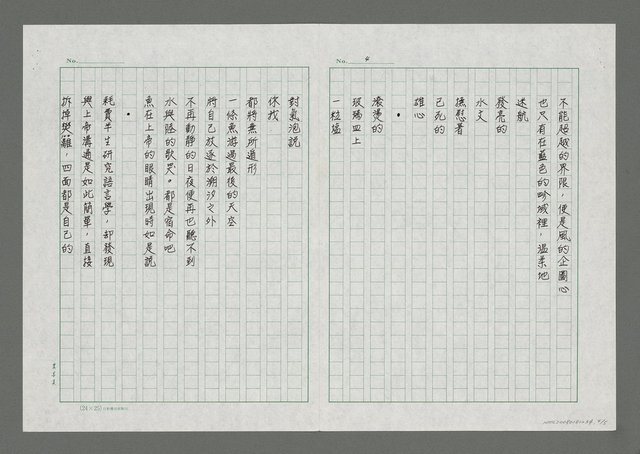 No. 4
不能超越的界限,便是風的企圖心
也只有在藍色的畛域裡,溫柔地
迷航
發亮的
水文
撫慰著
已死的
雄心
•
滾燙的
玻璃皿上
一粒鹽
No.
對氣泡說
你我
都將無所遁形
一條魚游過最後的天空
將自己放逐於潮汐之外
不再動靜的日夜便再也聽不到
水與陸的歌哭。都是宿命吧
魚在上帝的眼睛出現時如是說
•
耗費半生研究語言學,卻發現
與上帝溝通是如此簡單,直接
拆掉樊籬,四面都是自己的
(24×25)